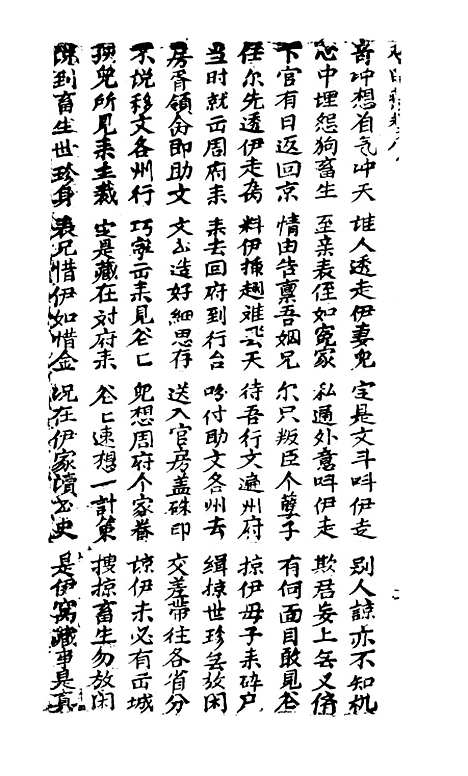 奇冲想省气冲天 谁人透走伊妻児 定是文斗呌伊走 别人諒亦不知机
心中埋怨狗畜生 至亲表侄如冤家 私通外意呌伊走 欺君妄上無义
下官有日返回京 情由告禀吾姻兄 尔只叛臣个孽子 有何面目敢見爸
任尔先透伊走 料伊插翅难飞天 待吾行文遍州府 掠伊母子来碎尸
当时就出周府来 来去回府到行台 吩付助文各州去 缉掠世珍無放闲
房胥領命即助文 文书造好細思存 送入官房盖硃印 交差带往各省分
不说移文各州行 巧家出来見爸匕 児想周府个家眷 諒伊未必有出城
孩児所見来主裁 定是藏在对府来 爸匕速想一計策 搜掠畜生勿放闲
到畜生世珍身 表兄惜伊如惜金 况在伊家讀书史 是伊窝藏事是真